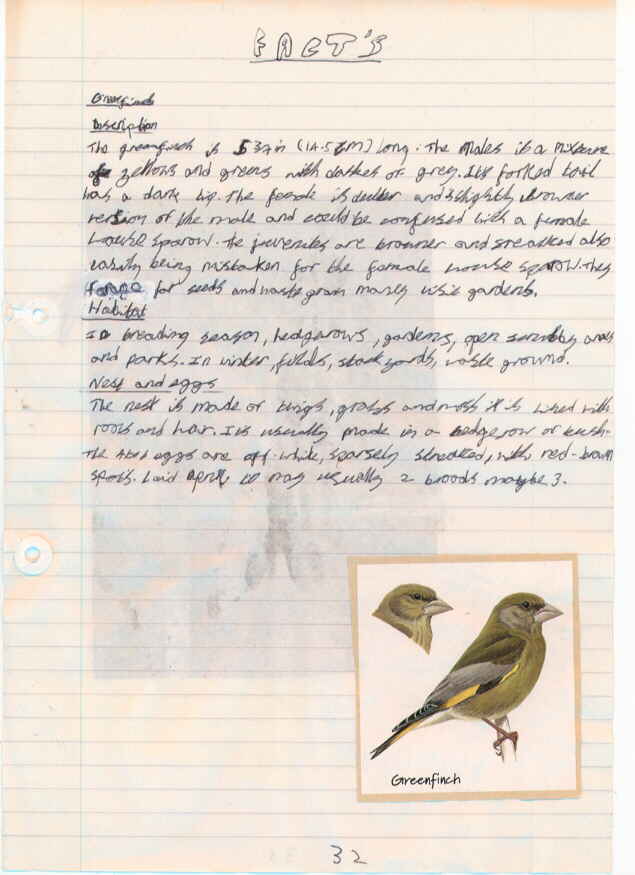 FACT'S
Greenfinch
Description
The greenfinch is 5 3/4 in (14.5 CM) long. The Males is a mixture
of yellows and greens with darker or grey. Its forked tail
has a dark tip. The female is duller and slightly browner
version of the male and could be confused with a female
house sparow. The juveniles are browner and streaked also
easily being mistaken for the female house sparow. They
forage for seeds and waste grain mainly visit gardens.
Habitat
In breeding season, hedgerows, gardens, open scrubby areas
and parks. In winter, fields, stock yards, waste ground.
Nest and eggs
The nest is made of twigs, grass and moss it is lined with
roots and hair. Its usually made in a hedgerow or bush.
the eggs are off-white, sparsely streaked, with red-brown
spots. Laid April to may usually 2 broods maybe 3.
Greenfinch
32